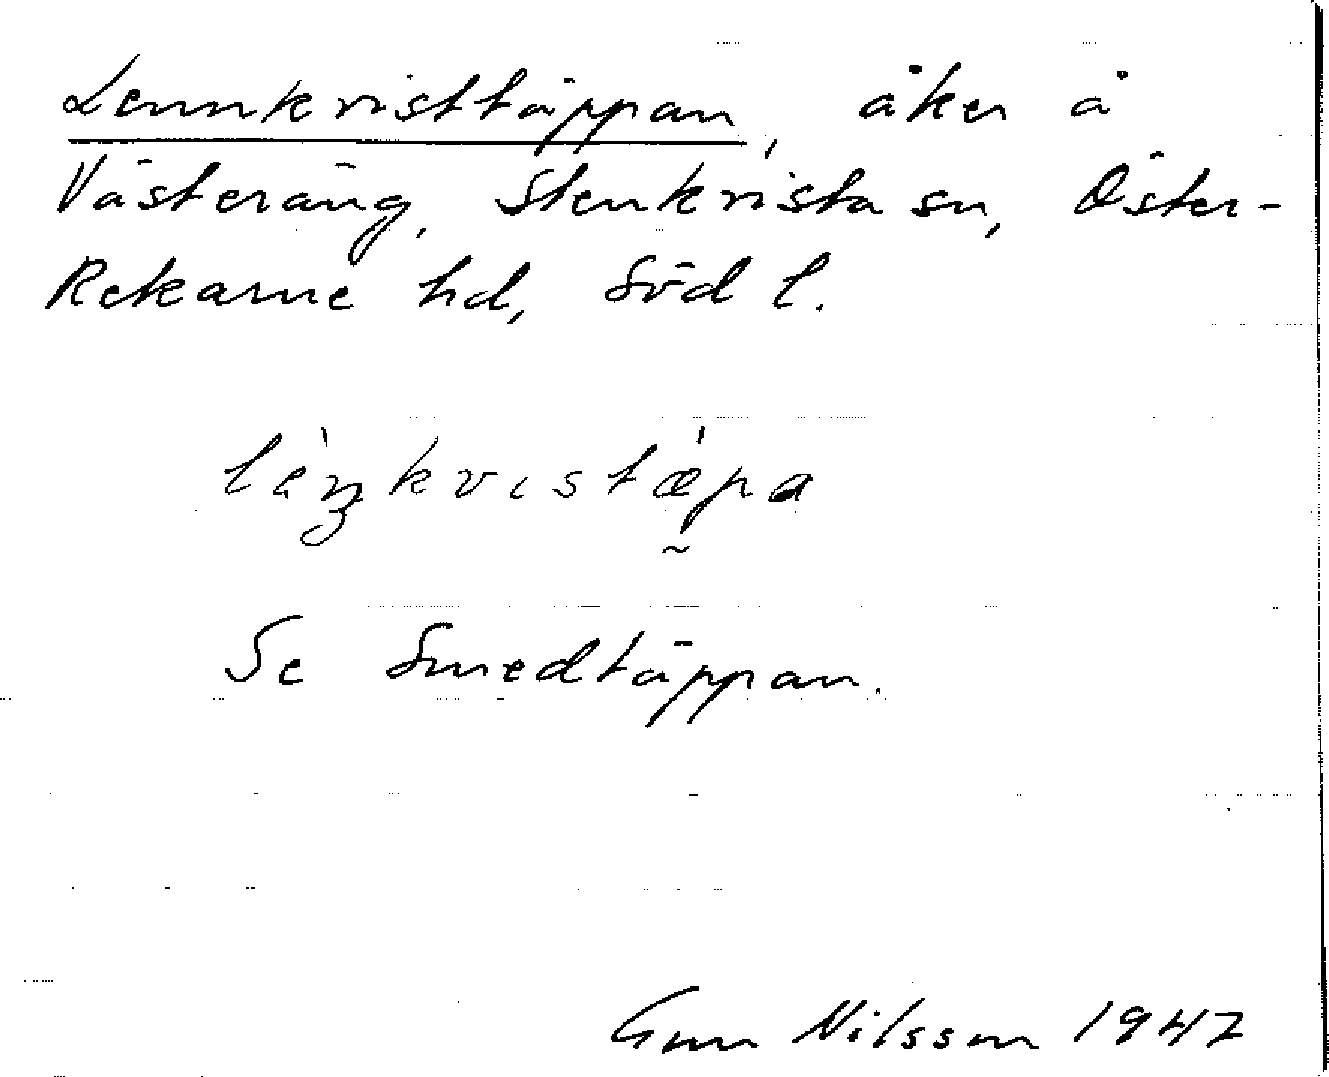 Lennkvisttäppan, åker å
Västeräng, Stenkvista sn, Öster-
Rekarne hd, Söd l.
Se Smedtäppan.
Gun Nilsson 1947